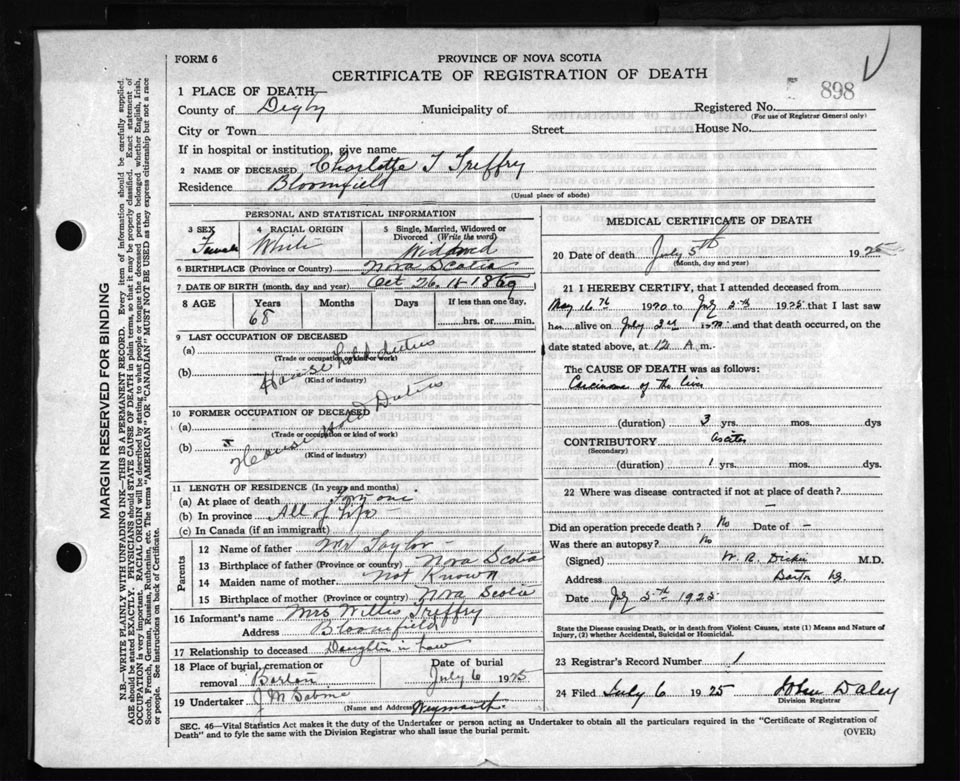 FORM 6
PROVINCE OF NOVA SCOTIA
CERTIFICATE OF REGISTRATION OF DEATH
898
1 PLACE OF DEATH—
County of Digby Municipality of Registered No.
(For use of Registrar General only)
City or Town Street House No.
If in hospital or institution, give name
2 NAME OF DECEASED Charlotte T Treffry
Residence Bloomfield
(Usual place of abode)
PERSONAL AND STATISTICAL INFORMATION
3 SEX 4 RACIAL ORIGIN 5 Single, Married, Widowed or Divorced (Write the word)
Female White Widowed
6 BIRTHPLACE (Province or Country) Nova Scotia
7 DATE OF BIRTH (month, day and year) Oct 26
8 AGE Years Months Days If less than one day,
68 hrs. or min.
9 LAST OCCUPATION OF DECEASED
(a)
(Trade or occupation or kind of work)
House hold duties
(b)
(Kind of industry)
10 FORMER OCCUPATION OF DECEASED
(a)
(Trade or occupation or kind of work)
House Hold Duties
(b)
(Kind of industry)
11 LENGTH OF RESIDENCE (In years and months)
(a) At place of death Forty one
(b) In province All of Life
(c) In Canada (if an immigrant)
Parents
12 Name of father Mr Taylor
13 Birthplace of father (Province or country) Nova Scotia
14 Maiden name of mother Not Known
15 Birthplace of mother (Province or country) Nova Scotia
16 Informant's name Mrs Willis Treffry
Address Bloomfield
17 Relationship to deceased Daughter in Law
18 Place of burial, cremation or removal Barton
Date of burial July 6 1925
19 Undertaker J M Sabine
(Name and Address) Weymouth
MEDICAL CERTIFICATE OF DEATH
20 Date of death July 5th 1925
(Month, day and year)
21 I HEREBY CERTIFY, that I attended deceased from
May 16th 1920 to July 5th 1925 that I last saw
her alive on July 2nd and that death occurred, on the
date stated above, at 12 A m.
The CAUSE OF DEATH was as follows:
Carcinoma of the liver
(duration) 3 yrs. mos. dys
CONTRIBUTORY ascites
(Secondary)
(duration) 1 yrs. mos. dys.
22 Where was disease contracted if not at place of death?
—
Did an operation precede death? No Date of —
Was there an autopsy? No
(Signed) W. R. Dickie M.D.
Address Barton
Date July 5th 1925
State the Disease causing Death, or in death from Violent Causes, state (1) Means and Nature of
Injury, (2) whether Accidental, Suicidal or Homicidal.
23 Registrar's Record Number 1
24 Filed July 6 1925 John Daley
Division Registrar
SEC. 46—Vital Statistics Act makes it the duty of the Undertaker or person acting as Undertaker to obtain all the particulars required in the "Certificate of Registration of
Death" and to fyle the same with the Division Registrar who shall issue the burial permit. (OVER)
MARGIN RESERVED FOR BINDING
N.B.—WRITE PLAINLY WITH UNFADING INK—THIS IS A PERMANENT RECORD. Every item of information should be carefully supplied.
AGE should be stated EXACTLY. PHYSICIANS should STATE CAUSE OF DEATH in plain terms, so that it may be properly classified. Exact statement of
OCCUPATION is very important. RACIAL ORIGIN will be described by stating to what people or tongue the deceased person belonged, whether English, Irish,
Scotch, French, German, Russian, Ruthenian, etc. The terms "AMERICAN" OR "CANADIAN" MUST NOT BE USED as they express citizenship but not a race
or people. See instructions on back of Certificate.